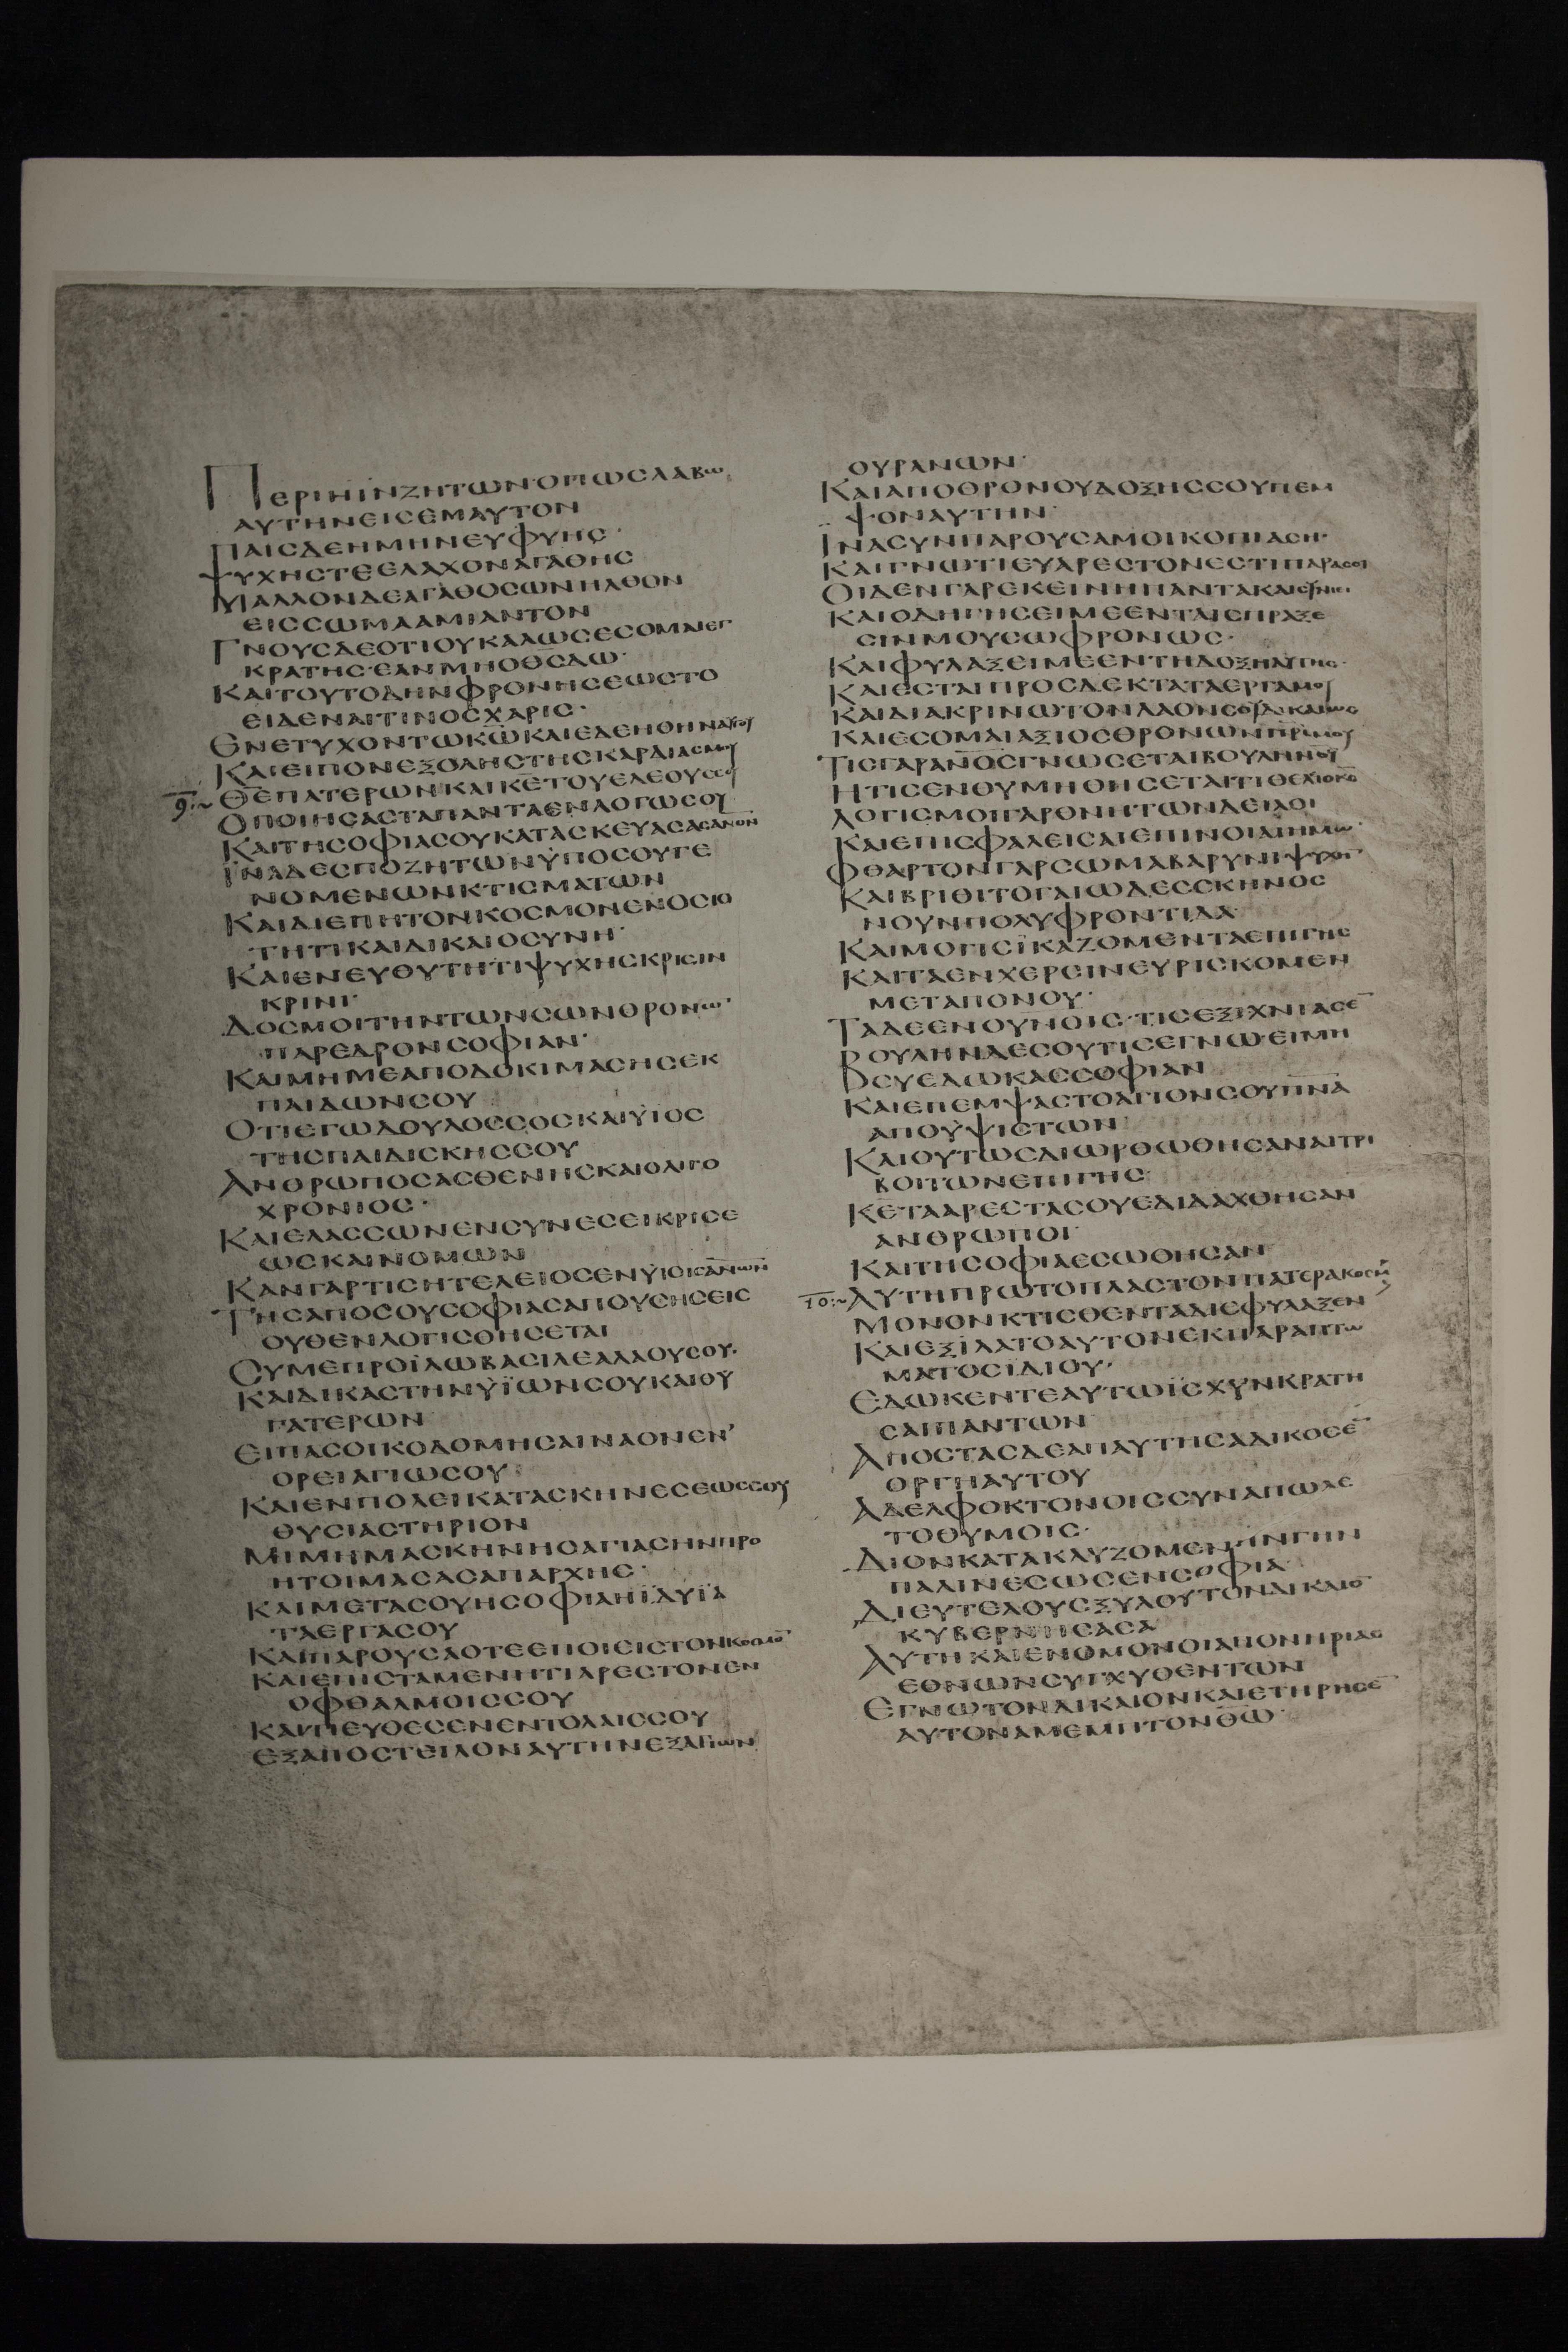 ΠΕΡΙΗΙΝΖΗΤΩΝ·ΟΠΩΣΛΑΒΩ
ΑΥΤΗΝΕΙΣΕΜΑΥΤΟΝ
ΠΑΙΣΔΕΗΜΗΝΕΥΦΥΗΣ·
ΨΥΧΗΣΤΕΕΛΑΧΟΝΑΓΑΘΗΣ
ΜΑΛΛΟΝΔΕΑΓΑΘΟΣΩΝΗΛΘΟΝ
ΕΙΣΣΩΜΑΑΜΙΑΝΤΟΝ
ΓΝΟΥΣΔΕΟΤΙΟΥΚΑΛΩΣΕΣΟΜΑΙΕΓ
ΚΡΑΤΗΣ·ΕΑΝΜΗΟΘ̅Σ̅ΔΩ·
ΚΑΙΤΟΥΤΟΔΗΝΦΡΟΝΗΣΕΩΣΤΟ
ΕΙΔΕΝΑΙΤΙΝΟΣΧΑΡΙΣ·
ΕΝΕΤΥΧΟΝΤΩΚ̅Ω̅ΚΑΙΕΔΕΗΘΗΝΑΥΤΟΥ
ΚΑΙΕΙΠΟΝΕΞΟΛΗΣΤΗΣΚΑΡΔΙΑΣΜΟΥ
9:~ Θ̅Ε̅ΠΑΤΕΡΩΝΚΑΙΚ̅Ε̅ΤΟΥΕΛΕΟΥΣΣΟΥ
ΟΠΟΙΗΣΑΣΤΑΠΑΝΤΑΕΝΛΟΓΩΣΟΥ
ΚΑΙΤΗΣΟΦΙΑΣΟΥΚΑΤΑΣΚΕΥΑΣΑΣΑ̅Ν̅Ο̅Ν̅
ΙΝΑΔΕΣΠΟΖΗΤΩΝΫΠΟΣΟΥΓΕ
ΝΟΜΕΝΩΝΚΤΙΣΜΑΤΩΝ
ΚΑΙΔΙΕΠΗΤΟΝΚΟΣΜΟΝΕΝΟΣΙΟ
ΤΗΤΙΚΑΙΔΙΚΑΙΟΣΥΝΗ·
ΚΑΙΕΝΕΥΘΥΤΗΤΙΨΥΧΗΣΚΡΙΣΙΝ
ΚΡΙΝΙ·
ΔΟΣΜΟΙΤΗΝΤΩΝΣΩΝΘΡΟΝΩ·
ΠΑΡΕΔΡΟΝΣΟΦΙΑΝ·
ΚΑΙΜΗΜΕΑΠΟΔΟΚΙΜΑΣΗΣΕΚ
ΠΑΙΔΩΝΣΟΥ
ΟΤΙΕΓΩΔΟΥΛΟΣΣΟΣΚΑΙΫΙΟΣ
ΤΗΣΠΑΙΔΙΣΚΗΣΣΟΥ
ΑΝΘΡΩΠΟΣΑΣΘΕΝΗΣΚΑΙΟΛΙΓΟ
ΧΡΟΝΙΟΣ·
ΚΑΙΕΛΑΣΣΩΝΕΝΣΥΝΕΣΕΙΚΡΙΣΕ
ΩΣΚΑΙΝΟΜΩΝ
ΚΑΝΓΑΡΤΙΣΗΤΕΛΕΙΟΣΕΝΫΙΟΙΣΑ̅Ν̅Ω̅Ν̅
ΤΗΣΑΠΟΣΟΥΣΟΦΙΑΣΑΠΟΥΣΗΣΕΙΣ
ΟΥΘΕΝΛΟΓΙΣΘΗΣΕΤΑΙ
ΣΥΜΕΠΡΟΪΛΩΒΑΣΙΛΕΑΛΑΟΥΣΟΥ·
ΚΑΙΔΙΚΑΣΤΗΝΫΪΩΝΣΟΥΚΑΙΘΥ
ΓΑΤΕΡΩΝ
ΕΙΠΑΣΟΙΚΟΔΟΜΗΣΑΙΝΑΟΝΕΝ
ΟΡΕΙΑΓΙΩΣΟΥ
ΚΑΙΕΝΠΟΛΕΙΚΑΤΑΣΚΗΝΕΣΕΩΣΣΟΥ
ΘΥΣΙΑΣΤΗΡΙΟΝ
ΜΙΜΗΜΑΣΚΗΝΗΣΑΓΙΑΣΗΝΠΡΟ
ΗΤΟΙΜΑΣΑΣΑΠΑΡΧΗΣ·
ΚΑΙΜΕΤΑΣΟΥΗΣΟΦΙΑΗΪΔΥΪΑ
ΤΑΕΡΓΑΣΟΥ
ΚΑΙΠΑΡΟΥΣΑΟΤΕΕΠΟΙΕΙΣΤΟΝΚΟΣΜΟ
ΚΑΙΕΠΙΣΤΑΜΕΝΗΤΙΑΡΕΣΤΟΝΕΝ
ΟΦΘΑΛΜΟΙΣΣΟΥ
ΚΑΙΤΙΕΥΘΕΣΕΝΕΝΤΟΛΑΙΣΣΟΥ
ΕΞΑΠΟΣΤΕΙΛΟΝΑΥΤΗΝΕΞΑΓΙΩΝ
ΟΥΡΑΝΩΝ·
ΚΑΙΑΠΟΘΡΟΝΟΥΔΟΞΗΣΣΟΥΠΕΜ
ΨΟΝΑΥΤΗΝ·
ΪΝΑΣΥΝΠΑΡΟΥΣΑΜΟΙΚΟΠΙΑΣΗ·
ΚΑΙΓΝΩΤΙΕΥΑΡΕΣΤΟΝΕΣΤΙΠΑΡΑΣΟΙ
ΟΙΔΕΝΓΑΡΕΚΕΙΝΗΠΑΝΤΑΚΑΙΣΥΝΙΕΙ
ΚΑΙΟΔΗΓΗΣΕΙΜΕΕΝΤΑΙΣΠΡΑΞΕ
ΣΙΝΜΟΥΣΩΦΡΟΝΩΣ·
ΚΑΙΦΥΛΑΞΕΙΜΕΕΝΤΗΔΟΞΗΑΥΤΗΣ·
ΚΑΙΕΣΤΑΙΠΡΟΣΔΕΚΤΑΤΑΕΡΓΑΜΟΥ
ΚΑΙΔΙΑΚΡΙΝΩΤΟΝΛΑΟΝΣΟΥΔΙΚΑΙΩΣ
ΚΑΙΕΣΟΜΑΙΑΞΙΟΣΘΡΟΝΩΝΠ̅Ρ̅Σ̅ΜΟΥ
ΤΙΣΓΑΡΑ̅Ν̅Ο̅Σ̅ΓΝΩΣΕΤΑΙΒΟΥΛΗΝΘ̅Υ̅
ΗΤΙΣΕΝΘΥΜΗΘΗΣΕΤΑΙΤΙΘΕΛΙΟΚ̅Σ̅
ΛΟΓΙΣΜΟΙΓΑΡΘΝΗΤΩΝΔΕΙΛΟΙ
ΚΑΙΕΠΙΣΦΑΛΕΙΣΑΙΕΠΙΝΟΙΑΙΗΜΩ·
ΦΘΑΡΤΟΝΓΑΡΣΩΜΑΒΑΡΥΝΙΨΥΧΗ
ΚΑΙΒΡΙΘΙΤΟΓΑΙΩΔΕΣΣΚΗΝΟΣ
ΝΟΥΝΠΟΛΥΦΡΟΝΤΙΔΑ
ΚΑΙΜΟΓΙΣΪΚΑΖΟΜΕΝΤΑΕΠΙΓΗΣ
ΚΑΙΤΑΕΝΧΕΡΣΙΝΕΥΡΙΣΚΟΜΕΝ
ΜΕΤΑΠΟΝΟΥ·
ΤΑΔΕΕΝΟΥΝΟΙΣ·ΤΙΣΕΞΙΧΝΙΑΣΕ
ΒΟΥΛΗΝΔΕΣΟΥΤΙΣΕΓΝΩ·ΕΙΜΗ
ΣΥΕΔΩΚΑΣΣΟΦΙΑΝ
ΚΑΙΕΠΕΜΨΑΣΤΟΑΓΙΟΝΣΟΥΠ̅Ν̅Α̅
ΑΠΟΫΨΙΣΤΩΝ
ΚΑΙΟΥΤΩΣΔΙΩΡΘΩΘΗΣΑΝΑΙΤΡΙ
ΒΟΙΤΩΝΕΠΙΓΗΣ·
ΚΕΤΑΑΡΕΣΤΑΣΟΥΕΔΙΔΑΧΘΗΣΑΝ
ΑΝΘΡΩΠΟΙ·
ΚΑΙΤΗΣΟΦΙΑΕΣΩΘΗΣΑΝ
10:~ ΑΥΤΗΠΡΩΤΟΠΛΑΣΤΟΝΠΑΤΕΡΑΚΟΣΜΟΥ
ΜΟΝΟΝΚΤΙΣΘΕΝΤΑΔΙΕΦΥΛΑΞΕΝ
ΚΑΙΕΞΙΛΑΤΟΑΥΤΟΝΕΚΠΑΡΑΠΤΩ
ΜΑΤΟΣΪΔΙΟΥ·
ΕΔΩΚΕΝΤΕΑΥΤΩΪΣΧΥΝΚΡΑΤΗ
ΣΑΙΠΑΝΤΩΝ
ΑΠΟΣΤΑΣΔΕΑΠΑΥΤΗΣΑΔΙΚΟΣΕ
ΟΡΓΗΑΥΤΟΥ
ΑΔΕΛΦΟΚΤΟΝΟΙΣΣΥΝΑΠΩΛΕ
ΤΟΘΥΜΟΙΣ·
ΔΙΟΝΚΑΤΑΚΛΥΖΟΜΕΝΗΝΓΗΝ
ΠΑΛΙΝΕΣΩΣΕΝΣΟΦΙΑ
ΔΙΕΥΤΕΛΟΥΣΞΥΛΟΥΤΟΝΔΙΚΑΙΟ
ΚΥΒΕΡΝΗΣΑΣΑ
ΑΥΤΗΚΑΙΕΝΟΜΟΝΟΙΑΠΟΝΗΡΙΑΣ
ΕΘΝΩΝΣΥΓΧΥΘΕΝΤΩΝ
ΕΓΝΩΤΟΝΔΙΚΑΙΟΝΚΑΙΕΤΗΡΗΣΕ
ΑΥΤΟΝΑΜΕΜΠΤΟΝΘ̅Ω̅·